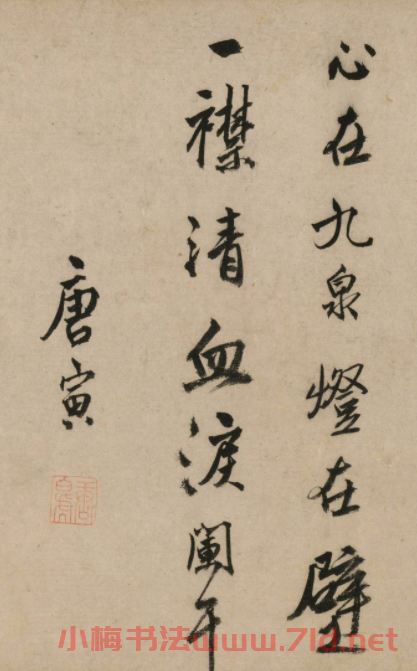 心在九泉燈在壁
一襟清血淚闌干
唐寅
小梅书法www.7ld.net